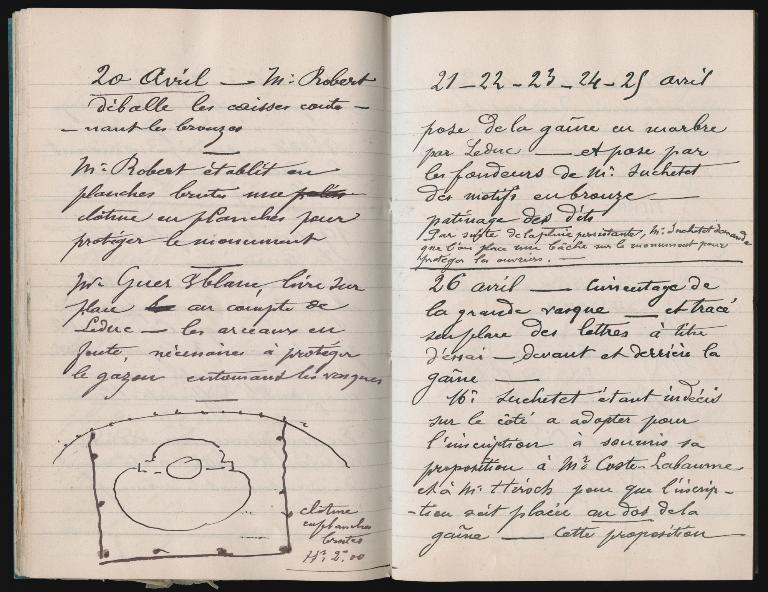 20 Avril — Mr Robert
déballe les caisses conte-
-nant les bronzes
Mr Robert établit en
planches brutes une
clôture en planches pour
protéger le monument
Mr Guer &blanc, livre sur
place au compte de
Leduc — les arceaux en
fonte, nécessaires à protéger
le gazon entourant les vasques
clôture
en planches
brutes
Hr 2m00
21 – 22 – 23 – 24 – 25 avril
pose de la gaîne en marbre
par Leduc — et pose par
les fondeurs de Mr Suchetet
des motifs en bronze —
patinage des dits
Par suite de la pluie persistante, Mr Suchetet demande
que l'on place une bâche sur le monument pour
protéger les ouvriers. —
26 avril — Cimentage de
la grande vasque — et tracé
sur place des lettres à titre
d'essai — devant et derrière la
gaîne —
Mr Suchetet étant indécis
sur le côté a adopter pour
l'inscription à soumis sa
proposition à Mr Coste-Labaume
et à Mr Hirsch pour que l'inscrip-
-tion soit placée au dos de la
gaîne — Cette proposition